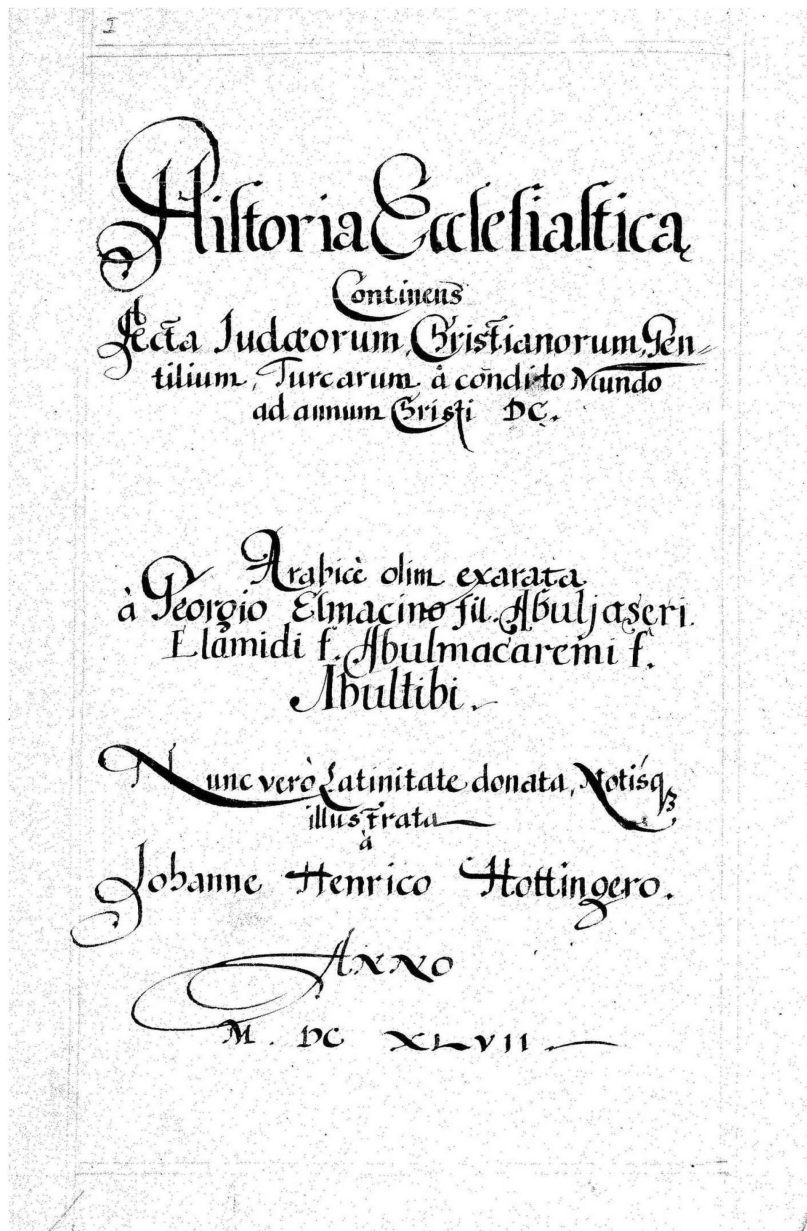 I
Hiſtoria Eccleſiaſtica
Continens
Acta Judæorum, Chriſtianorum, Gen⸗
tilium, Turcarum à condito Mundo
ad annum Chriſti DC.
Arabicè olim exarata
à Georgio Elmacino fil. Abuljaseri
Elamidi f. Abulmacaremi f.
Abultibi.
Nunc verò Latinitate donata, Notisqꝫ
illustrata
à
Johanne Henrico Hottingero.
ANNO
M. DC XLVII